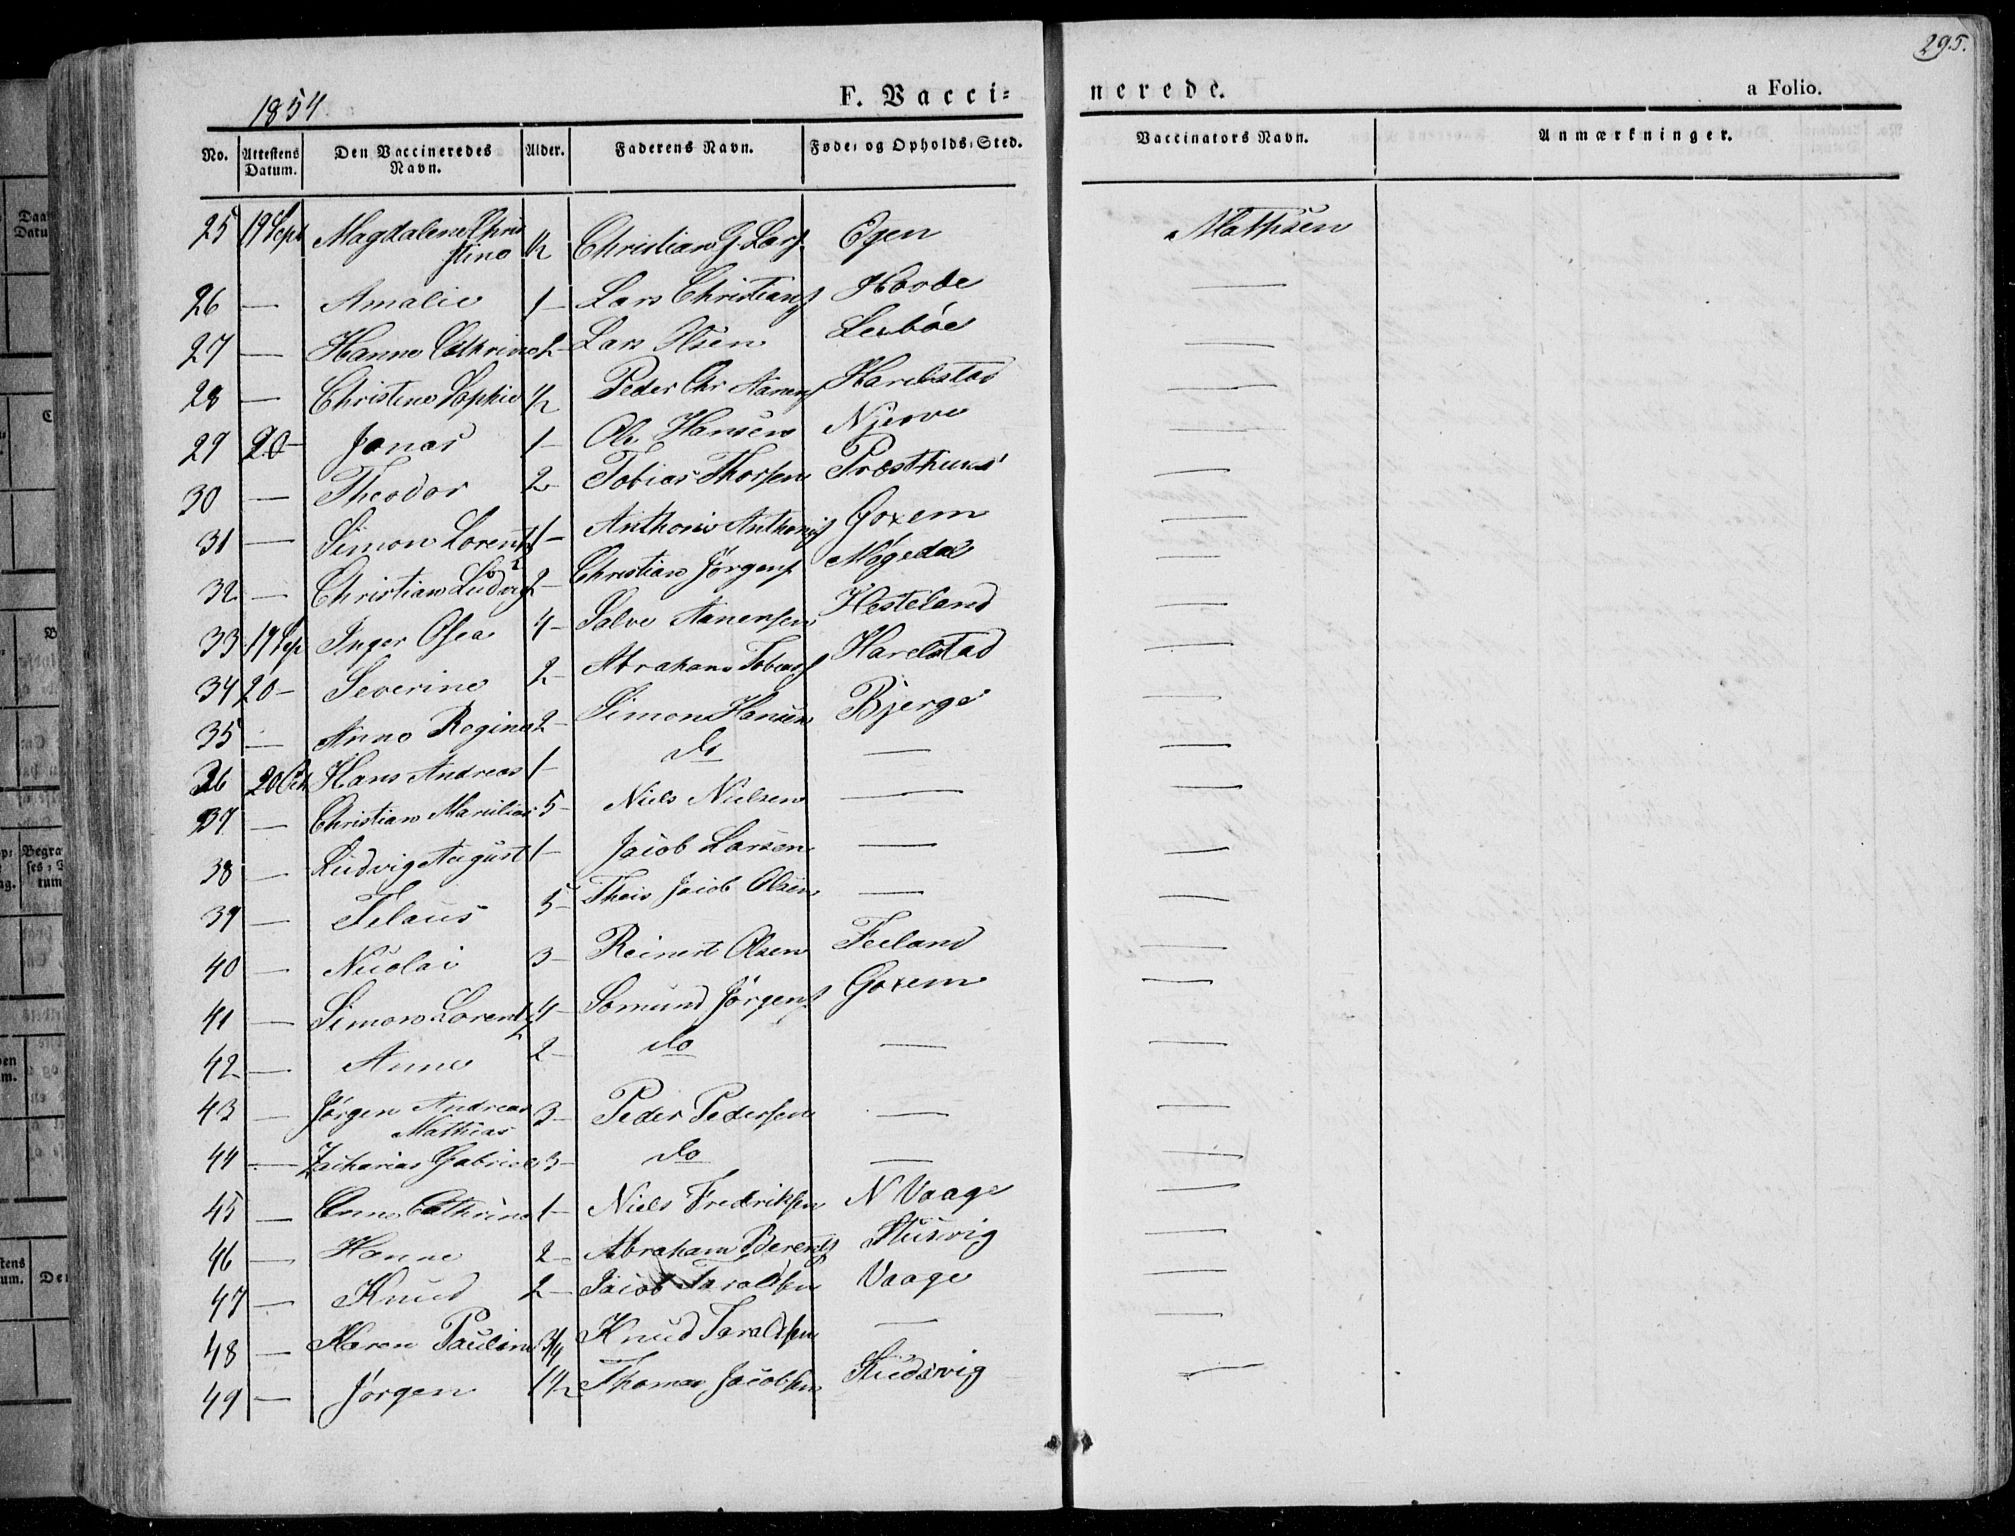 295.
1854.
F. Vacci=
nerede.
a Folio.
No.
Attestens Datum.
Den Vaccineredes Navn.
Alder.
Faderens Navn.
Føde= og Opholds=Sted.
Vaccinators Navn.
Anmærkninger.
25 19 Sept Magdalene Chri
stine ½ Christian G. Lars. Egen Mathsen
26 — Amalie 1 — Lars Christians —
27 — Hanne Cathrine 2 — Lars Olsen —
28 — Christine Sophie ½ Peder Chr Aanens Harelstad —
29 20 — Jonas 1 — Ole Hansen Njerve —
30 — Theodor 2 Tobias Thorsen Præsthuus —
31 — Simon Lorentz 1 — Anthoni Anthonis Goxem —
32 — Christian Ludvig 2 — Christian Jørgens Møgedal —
33 19 Sep Inger Osea 4 — Salve Aanensen Hesteland —
34 20 — Severine 2 — Abraham Tobias Harelstad —
35 — Anne Regine 2 — Simon Hansen Bjerge —
36 20 Oct Hans Andreas 1 — do — —
37 — Christian 5 — Niels Nielsen — —
38 — Ludvig August 1 — Jacob Larsen — —
39 — Telaus 5 — Theis Jacob Olsen — —
40 — Nicolai 3 — Reinert Olsen —
41 — Simon Lorentz 4 — Somund Jørgens Goxem —
42 — Anne 2 — do — —
43 — Jørgen Andreas
Mathias 3 — Peder Pedersen — —
44 — Zacharias Gabriel 3 — do — —
45 — Anne Cathrine 1 — Niels Fredriksen N Vaage —
46 — Hanne 2 — Abraham Berents —
47 — Knud 2 — Jacob Taraldsen Vaage —
48 — Karen Pauline 3/4 Knud Taraldsen — —
49 — Jørgen 1½ Thomas Jacobsen —